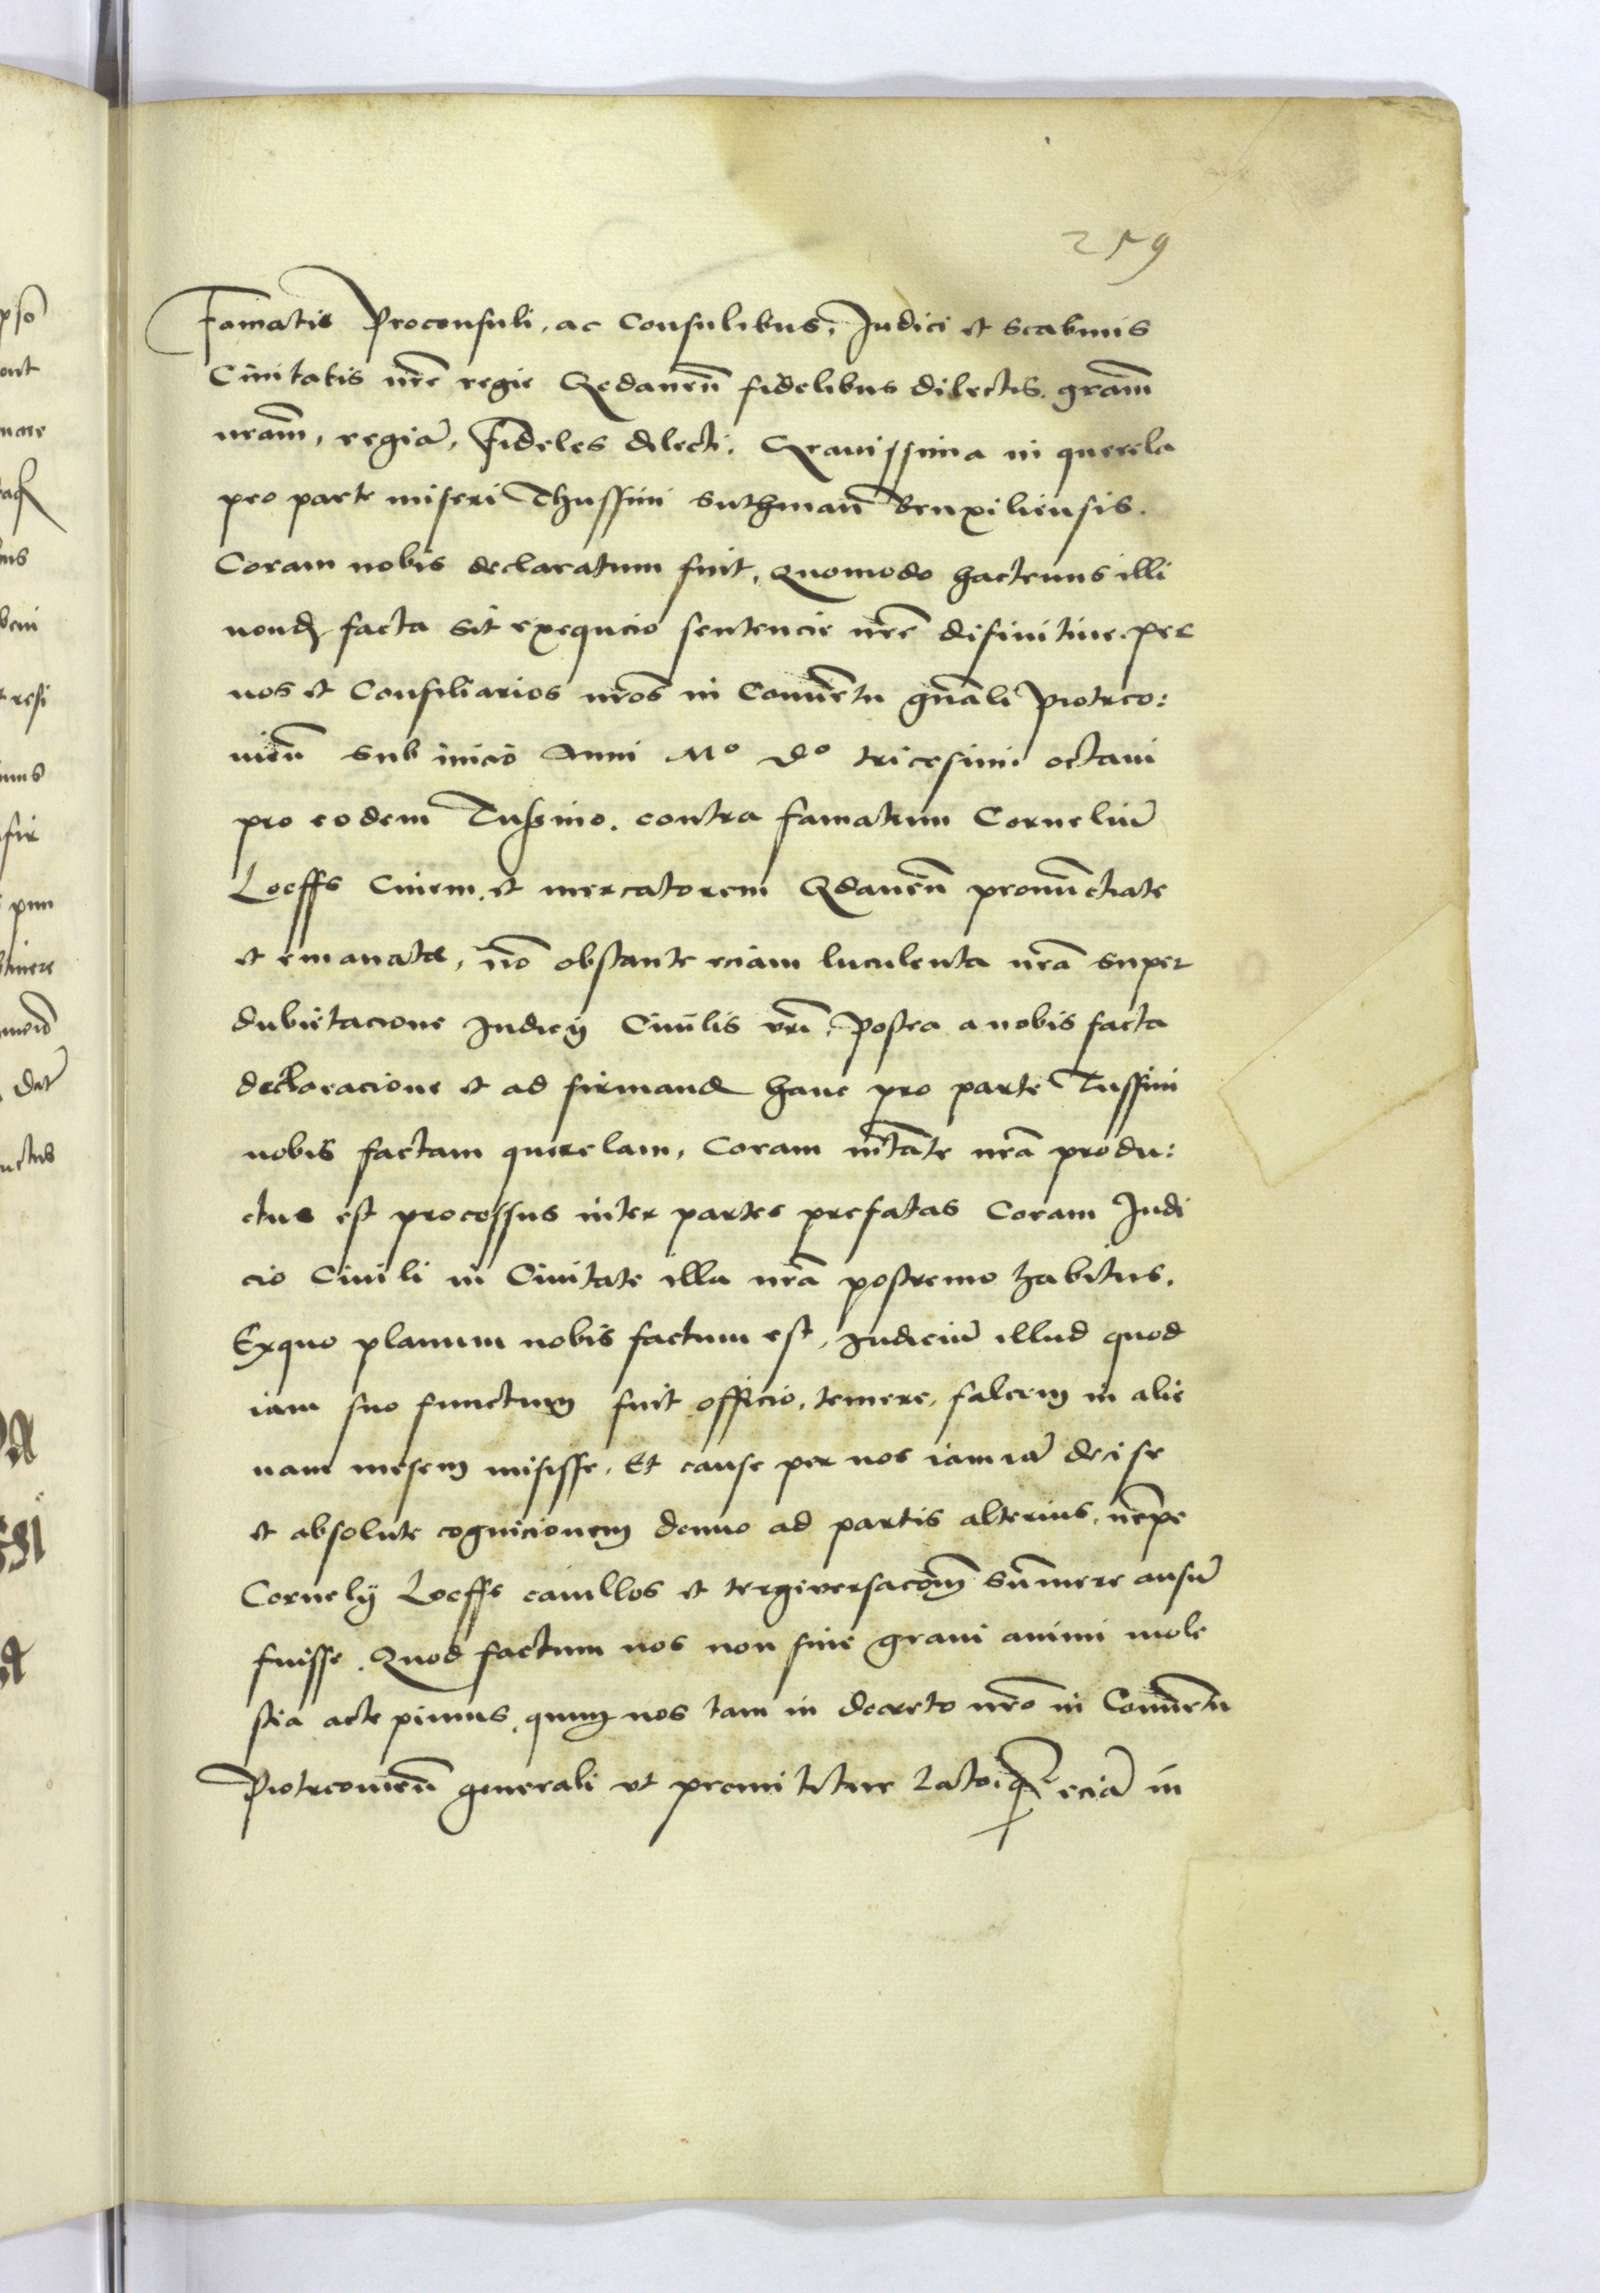 259
Famatis Proconsuli, ac Consulibus, Iudici et Scabinis
Ciuitatis nr̃e regie Gedaneñ fidelibus dilectis, gra͠m
nra͠m, regiã, Fideles dilecti. Grauissima in querela
pro parte miseri Thussini Suthmañ Bruxiliensis.
Coram nobis declaratum fuit, Quomodo hactenus illi
nondũ facta sit exequcio sentencie nr̃e difinitiue, per
nos et Consiliarios nr̃os in Conuẽtu gn̄ali Piotrco:
uieñ sub inicio Anni Mº dº tricesimi octaui
pro eodem Tussino, contra famatum Corneliũ
Loeffs Ciuem, et mercatorem Gdaneñ pronũctiate
et emanate, nõ obstante eciam luculenta nr̃a super
dubietacione Iudicij Ciuilis vr̃i, Postea a nobis facta
declaracione et ad firmand hanc pro parte Tussini
nobis factam querelam, Coram mt̃ate nr̃a produ:
ctus est processus inter partes prefatas Coram Iudi
cio Ciuili in Ciuitate illa nr̃a postremo habitus.
Exquo planum nobis factum est, Iudiciũ illud quod
iam suo functum fuit officio, temere, falcem in alie
nam mesem misisse, Et cause per nos iam iã decise
et absolute cognicionem denuo ad partis alterius, nẽpe
Cornelij Loeffs cauillos et tergiversacõm sũmere ausũ
fuisse. Quod factum nos non sine graui animi mole
stia accepimus, quum nos tam in decreto nr̃o in Conuẽtu
Piotrcouieñ generali vt premititur lato, q̃ eciã in